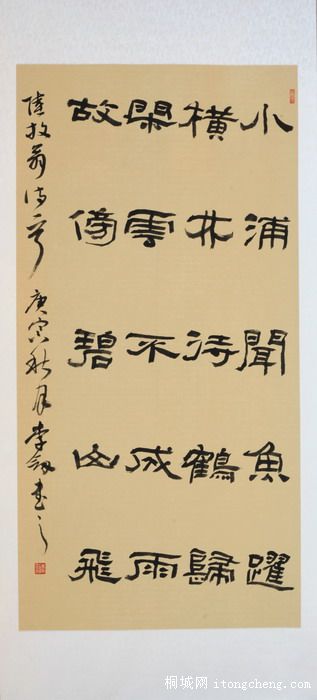 小浦聞魚躍
橫林待鶴歸
閑雲不成雨
故傍碧山飛
陸放翁詩 庚寅秋月李書之
桐城网 itongcheng.com